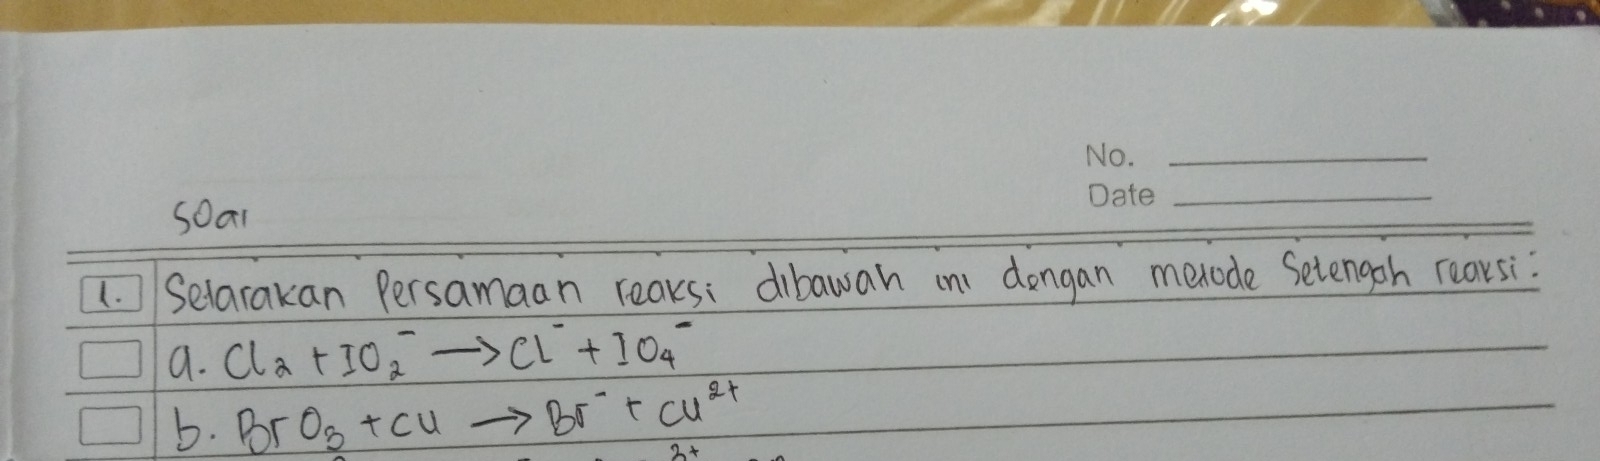 No.
Date
Soal
1. Selarakan Persamaan reaksi dibawah ini dengan metode Setengah reaksi:
a. Cl₂ + IO₂⁻ → Cl⁻ + IO₄⁻
b. BrO₃ + Cu → Br⁻ + Cu²⁺
3+